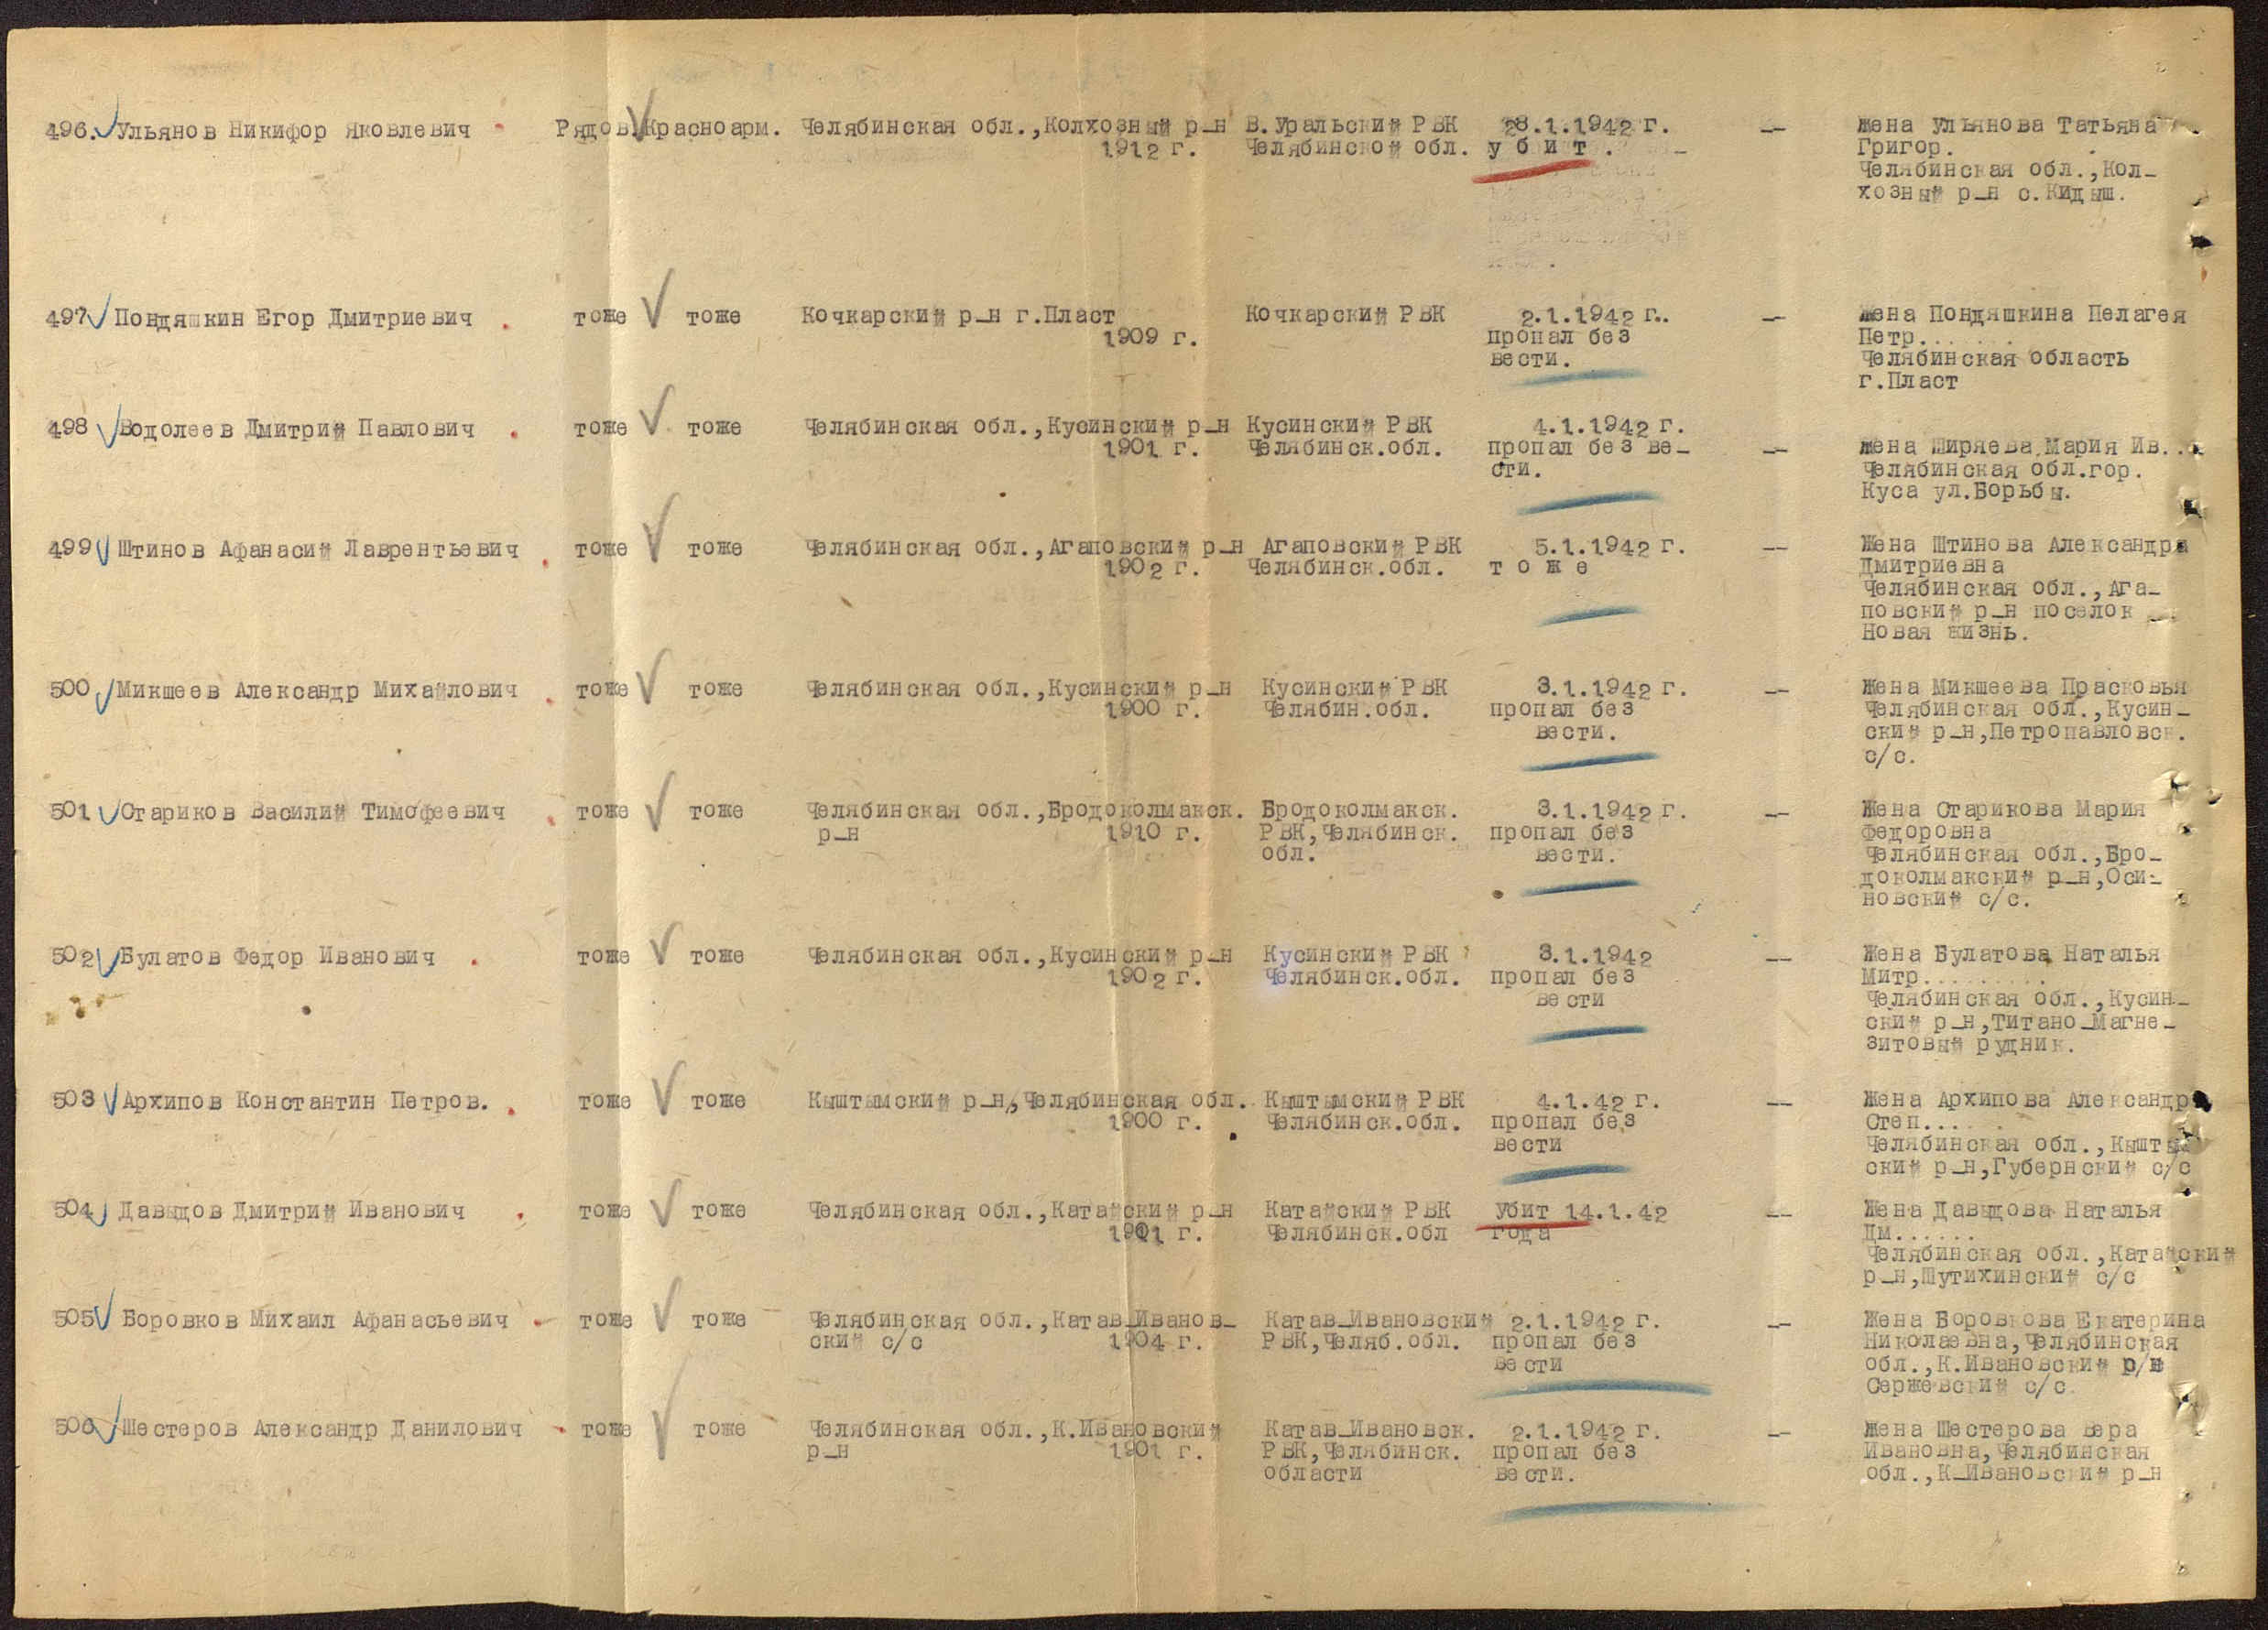 496. Ульянов Никифор Яковлевич Рядов. Красноарм. Челябинская обл.,Колхозный р-н В.Уральский РВК 28.1.1942 г. -- Жена Ульянова Татьяна
1912 г. Челябинской обл. у б и т . Григор.
Челябинская обл.,Кол-
хозный р-н с.Кидыш.
497 Пондяшкин Егор Дмитриевич тоже тоже Кочкарский р-н г.Пласт Кочкарский РВК 2.1.1942 г.. -- Жена Пондяшкина Пелагея
1909 г. пропал без Петр......
вести. Челябинская область
г.Пласт
498 Водолеев Дмитрий Павлович тоже тоже Челябинская обл.,Кусинский р-н Кусинский РВК 4.1.1942 г.
1901 г. Челябинск.обл. пропал без ве- -- Жена Ширяева Мария Ив...
сти. Челябинская обл.гор.
Куса ул.Борьбы.
499 Штинов Афанасий Лаврентьевич тоже тоже Челябинская обл.,Агаповский р-н Агаповский РВК 5.1.1942 г. -- Жена Штинова Александра
1902 г. Челябинск.обл. т о ж е Дмитриевна
Челябинская обл.,Ага-
повский р-н поселок
Новая жизнь.
500 Микшеев Александр Михайлович тоже тоже Челябинская обл.,Кусинский р-н Кусинский РВК 3.1.1942 г. -- Жена Микшеева Прасковья
1900 г. Челябин.обл. пропал без Челябинская обл.,Кусин-
вести. ский р-н,Петропавловск.
с/с.
501 Стариков Василий Тимофеевич тоже тоже Челябинская обл.,Бродоколмакск. Бродоколмакск. 3.1.1942 г. -- Жена Старикова Мария
р-н 1910 г. РВК,Челябинск. пропал без Федоровна
обл. вести. Челябинская обл.,Бро-
доколмакский р-н,Оси-
новский с/с.
502 Булатов Федор Иванович тоже тоже Челябинская обл.,Кусинский р-н Кусинский РВК 3.1.1942 -- Жена Булатова Наталья
1902 г. Челябинск.обл. пропал без Митр.........
вести Челябинская обл.,Кусин-
ский р-н,Титано-Магне-
зитовый рудник.
503 Архипов Константин Петров. тоже тоже Кыштымский р-н,Челябинская обл. Кыштымский РВК 4.1.42 г. -- Жена Архипова Александра
1900 г. Челябинск.обл. пропал без Степ.....
вести Челябинская обл.,Кышты
ский р-н,Губернский с/с
504 Давыдов Дмитрий Иванович тоже тоже Челябинская обл.,Катайский р-н Катайский РВК убит 14.1.42 -- Жена Давыдова Наталья
1901 г. Челябинск.обл года Дм......
Челябинская обл.,Катайский
р-н,Шутихинский с/с
505 Боровков Михаил Афанасьевич тоже тоже Челябинская обл.,Катав-Иванов- Катав-Ивановский 2.1.1942 г. -- Жена Боровкова Екатерина
ский с/с 1904 г. РВК,Челяб.обл. пропал без Николаевна,Челябинская
вести обл.,К.Ивановский р/н
Сержевский с/с.
506 Шестеров Александр Данилович тоже тоже Челябинская обл.,К.Ивановский Катав-Ивановск. 2.1.1942 г. -- Жена Шестерова Вера
р-н 1901 г. РВК,Челябинск. пропал без Ивановна,Челябинская
области вести. обл.,К-Ивановский р-н